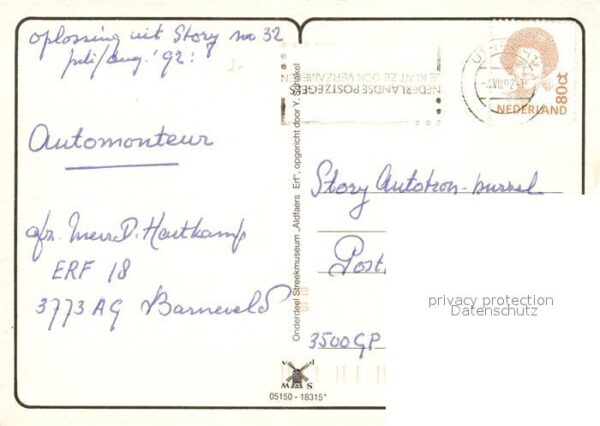 oplossing uit Story no 32
juli/aug. '92:
Automonteur
afz. Mevr. D. Houtkamp
ERF 18
3773 AG Barneveld
Onderdeel Streekmuseum „Aldfaers Erf”, opgericht door Y. Schakel
MAS
05150 - 18315*
NEDERLANDSE POSTZEGELS
JE KUNT ZE OOK VERZAMELEN
NEDERLAND 80ct
Story Autotron-puzzel
Post
3500 GP
privacy protection
Datenschutz